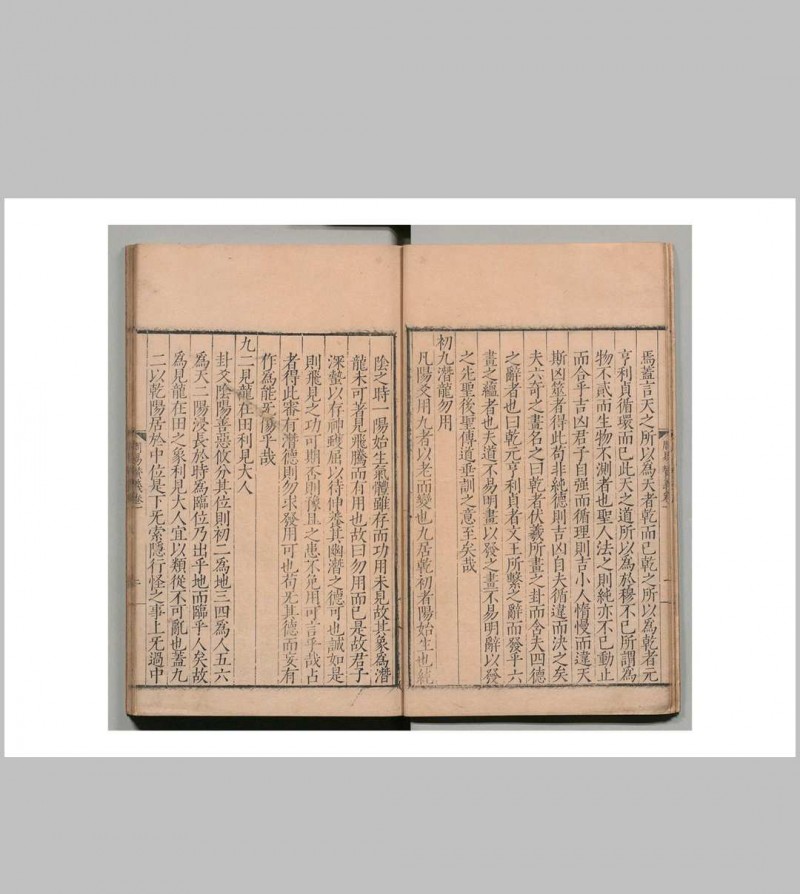 焉蓋言天之所以為天者乾而已乾之所以為乾者元
亨利貞循環而已此天之道所以為於穆不已所謂為
物不貳而生物不測者也聖人法之則純亦不已動止
而合乎吉凶君子自强而循理則吉小人惰慢而違天
斯凶筮者得此苟非純德則吉凶自夫循違而決之矣
夫六奇之畫名之曰乾者伏羲所畫之卦而含夫四德
之辭者也曰乾元亨利貞者文王所繫之辭而發乎六
畫之蘊者也夫道不易明畫以發之畫不易明辭以發
之先聖後聖傳道垂訓之意至矣哉
初九潛龍勿用
凡陽爻用九者以老而變也九居乾初者陽始生也純
陰之時一陽始生氣體雖存而功用未見故其象為潛
龍未可著見飛騰而有用也故曰勿用而已是故君子
深蟄以存神蠖屈以待伸養其幽潛之德可也誠如是
則飛見之功可期否則躁且之患不免用可言乎哉占
者得此審有潛德則勿求發用可也苟无其德而妄有
作為能无傷乎哉
九二見龍在田利見大人
卦爻陰陽善惡攸分其位則初二為地三四為人五六
為天二陽浸長於時為臨位乃出乎地而臨乎人矣故
為見龍在田之象利見大人宜以類從不可亂也蓋九
二以乾陽居於中位是下无索隱行怪之事上无過中